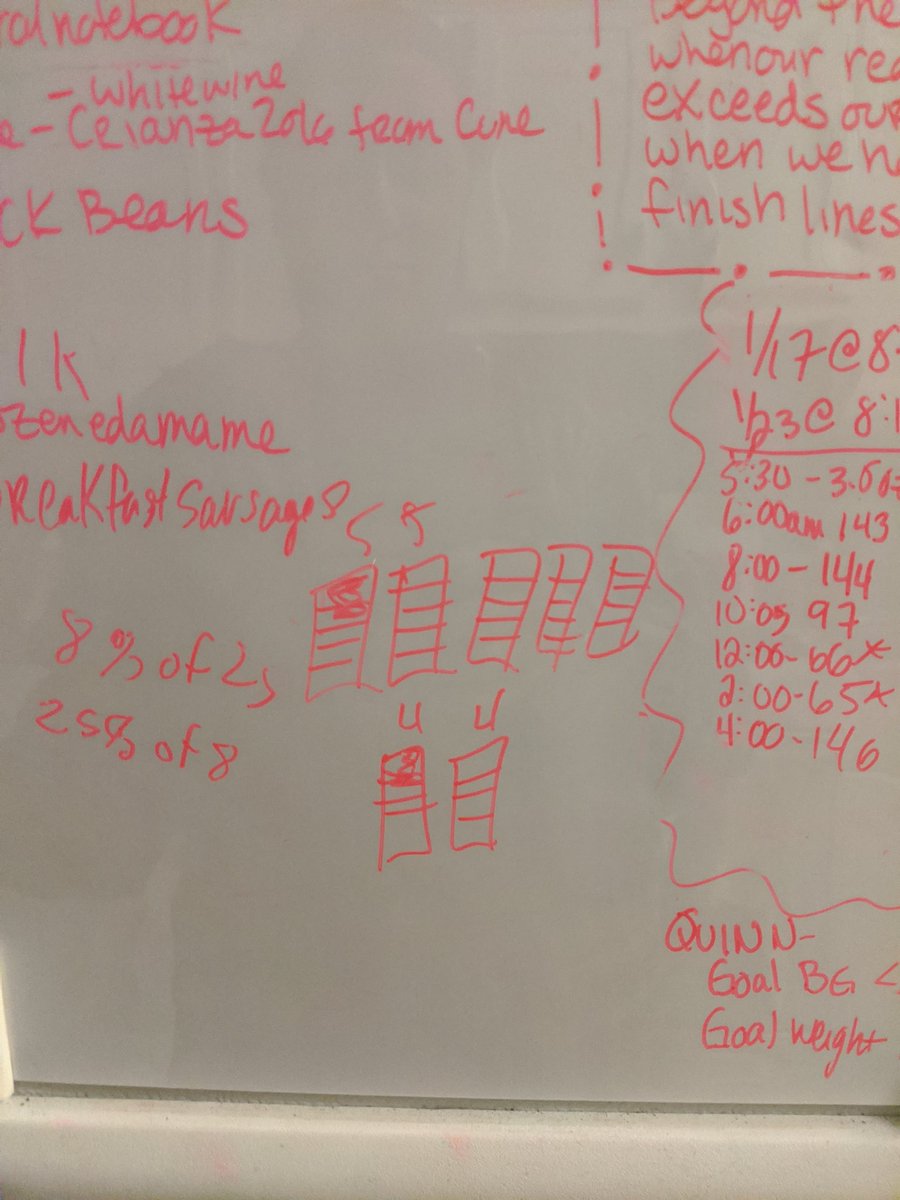 rd notebook
- white wine
e - Crianza 2016 team Cune
ck Beans
lk
ozen edamame
Breakfast Sausages
5 5
8% of 25
25% of 8
4 4
Beyond the
when our rea
exceeds our
when we h
finish lines
1/17 @ 8
1/23 @ 8:1
5:30 - 3.00z
6:00am 143
8:00 - 144
10:05 97
12:00 - 66*
2:00 - 65*
4:00 - 146
QUINN -
Goal BG <
Goal weight